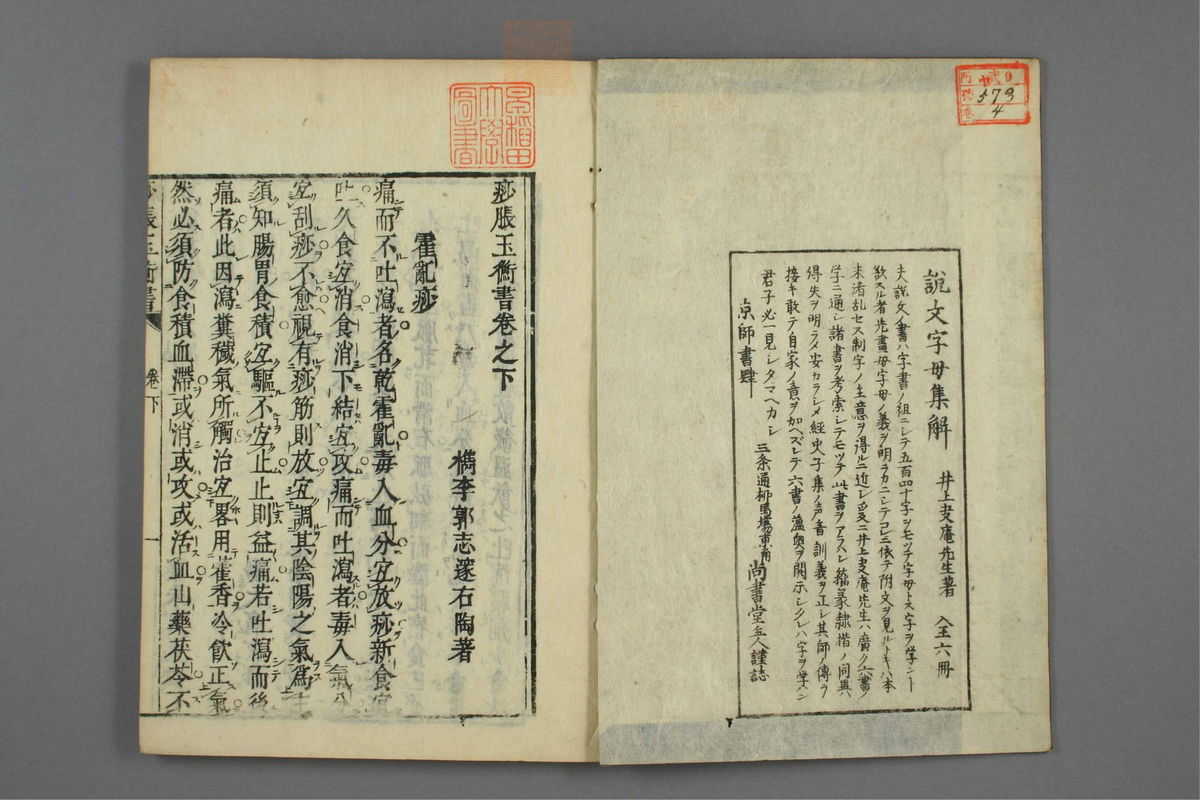 説文字母集解 井上支庵先生著 全六冊
夫説文ノ書ハ字書ノ祖ニシテ五百四十字ヲモツテ字母トス字ヲ学ント
欲スル者先書母字母ノ義ヲ明ラカニシテコレニ依テ附文ヲ見ルトキハ本
末淆乱セス制字ノ主意ヲ得ルニ近レ爰ニ井上支庵先生ハ廣ク六書ノ
学ニ通シ諸書ヲ考索シテモツテ此書ヲアラハシ篆隷楷ノ同異ハ
得失ヲ明ラメ安カラシメ経史子集ノ声音訓義ヲ正シ其師ノ傳ヲ
接キ敢テ自家ノ意ヲ加ヘズシテ六書ノ薀奥ヲ開示シタレハ字ヲ学ン
君子必一見シタマヘカシ
京師書肆 三条通柳馬場東 尚書堂主人謹誌
門 号 巻
573
4
早稲田
大學
圖書
痧脹玉衡書卷之下
檇李郭志邃右陶著
霍亂痧
痛而不吐瀉者名乾霍亂毒入血分宜放痧新食宜
吐久食宜消食消下結宜攻痛而吐瀉者毒入氣分
宜刮痧不愈視有痧筋則放宜調其陰陽之氣爲主
須知腸胃食積宜驅不宜止止則益痛若吐瀉而後
痛者此因瀉糞穢氣所觸治宜畧用藿香冷飲正氣
然必須防食積血滯或消或攻或活血山藥茯苓不
痧脹玉衡書 卷下 一